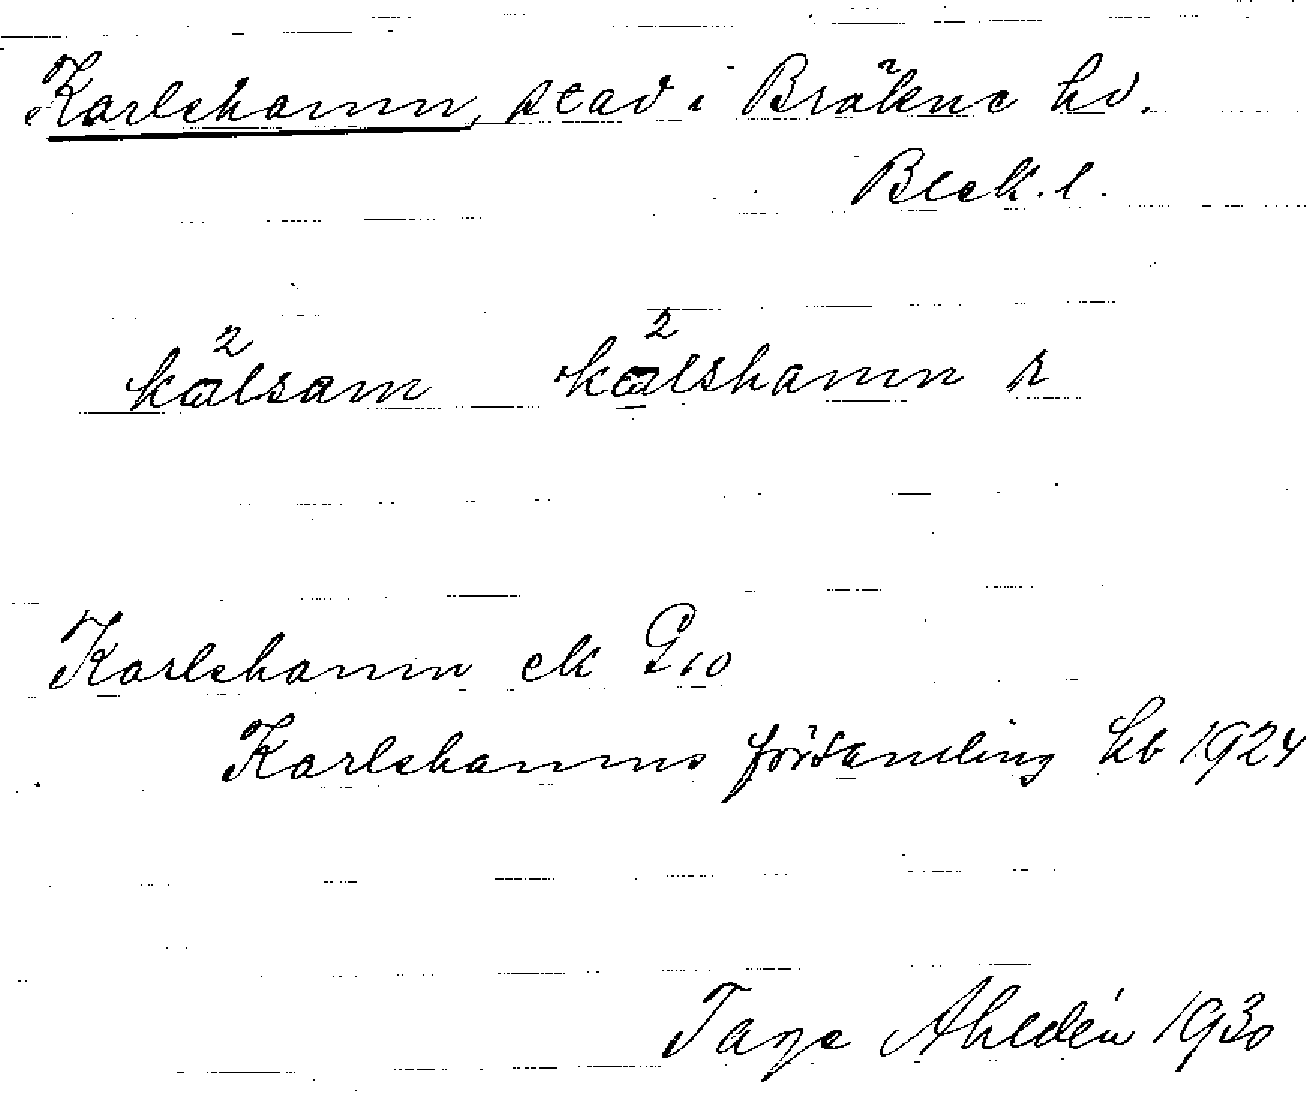 Karlshamn, stad i Bräkne hd.
Blek. l.
ka²lsam ka²lshamn r
Karlshamn ek G 10
Karlshamns församling hb 1924
Tage Ahldén 1930